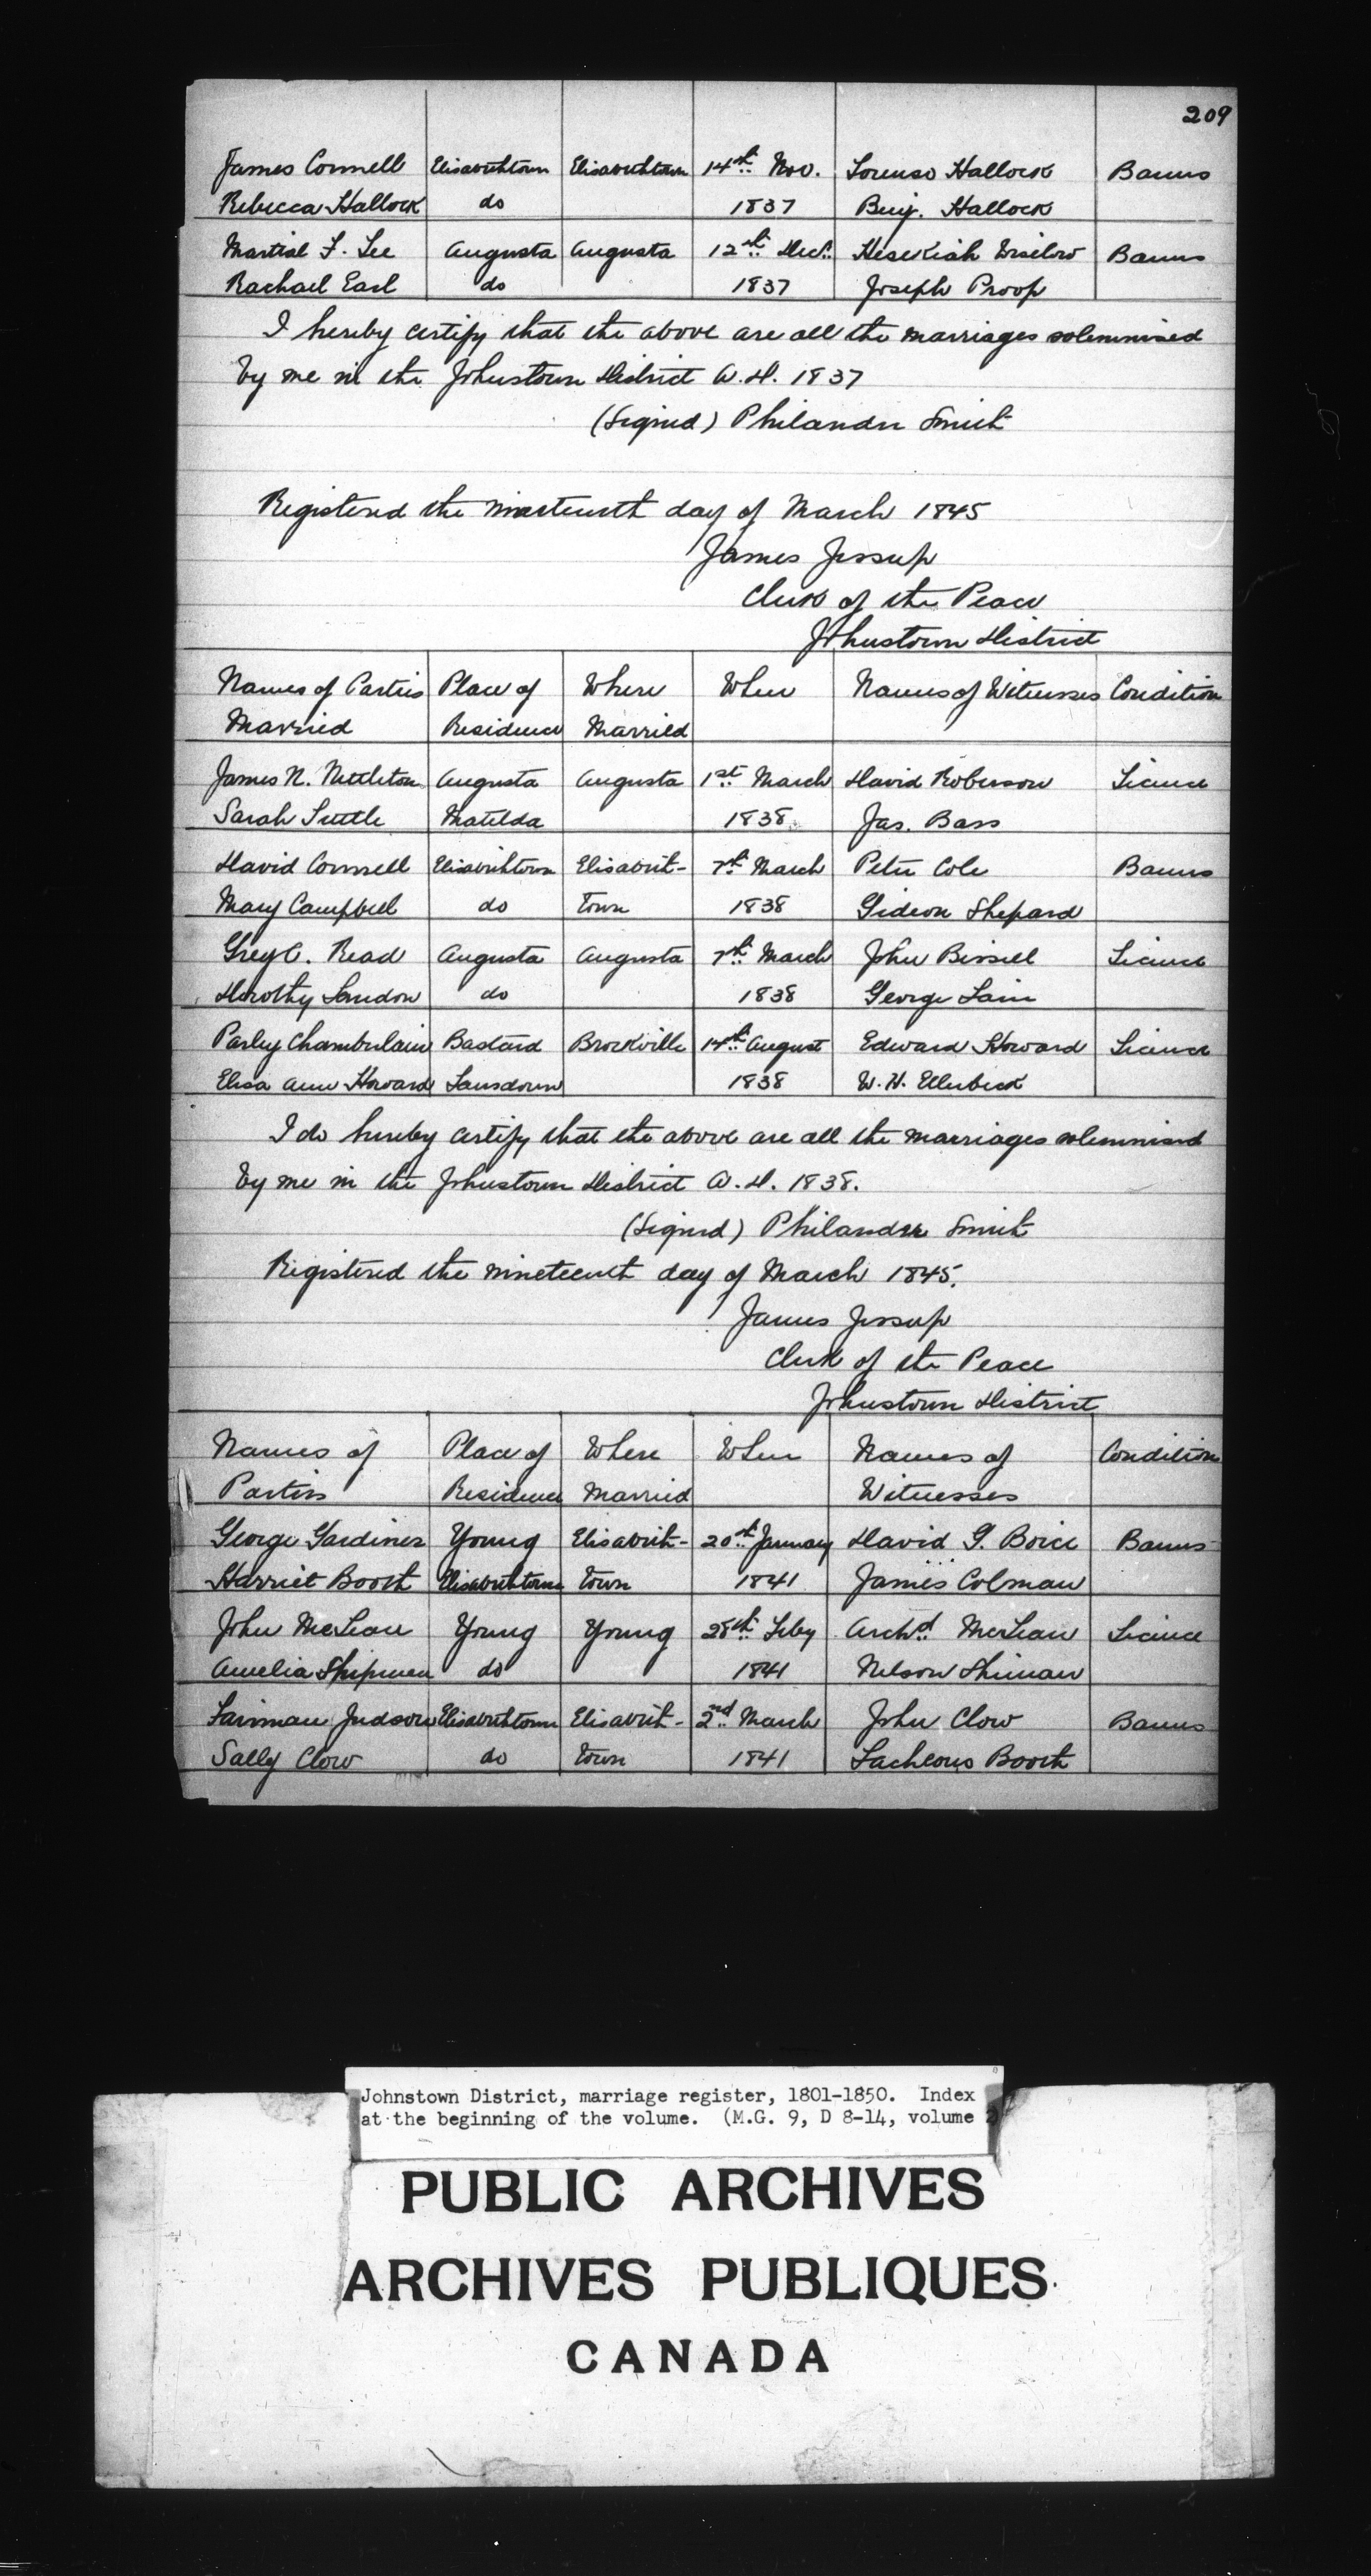 209
James Connell Elisabethtown Elisabethtown 14th Nov. Lorenso Hallock Banns
Rebecca Hallock do 1837 Benj. Hallock
Martial F. Lee Augusta Augusta 12th Decr. Hesekiah Wiselow Banns
Rachael Earl do 1837 Joseph Proop
I hereby certify that the above are all the marriages solemnised
by me in the Johnstown District A.D. 1837
(Signed) Philander Smith
Registered the nineteenth day of March 1845
James Jessup
Clerk of the Peace
Johnstown District
Names of Parties Place of Where When Names of Witnesses Condition
Married Residence Married
James N. Nettleton Augusta Augusta 1st March David Roberson Licence
Sarah Tuttle Matilda 1838 Jas. Bass
David Connell Elisabethtown Elisabeth- 7th March Peter Cole Banns
Mary Campbell do town 1838 Gideon Shepard
Grey C. Read Augusta Augusta 7th March John Bissell Licence
Dorothy Landon do 1838 George Lain
Parley Chamberlain Bastard Brockville 14th August Edward Howard Licence
Elisa Ann Howard Lansdown 1838 W. H. Ellerbeck
I do hereby certify that the above are all the marriages solemnised
by me in the Johnstown District A.D. 1838.
(Signed) Philander Smith
Registered the nineteenth day of March 1845.
James Jessup
Clerk of the Peace
Johnstown District
Names of Place of Where When Names of Condition
Parties Residence Married Witnesses
George Gardiner Young Elisabeth- 20th January David G. Boice Banns
Harriet Booth Elisabethtown town 1841 James Colman
John McLean Young Young 28th Feby Archd McLean Licence
Amelia Shipman do 1841 Nelson Shiman
Lainman Judson Elisabethtown Elisabeth- 2nd March John Clow Banns
Sally Clow do town 1841 Lacheous Booth
Johnstown District, marriage register, 1801-1850. Index
at the beginning of the volume. (M.G. 9, D 8-14, volume
PUBLIC ARCHIVES
ARCHIVES PUBLIQUES
CANADA